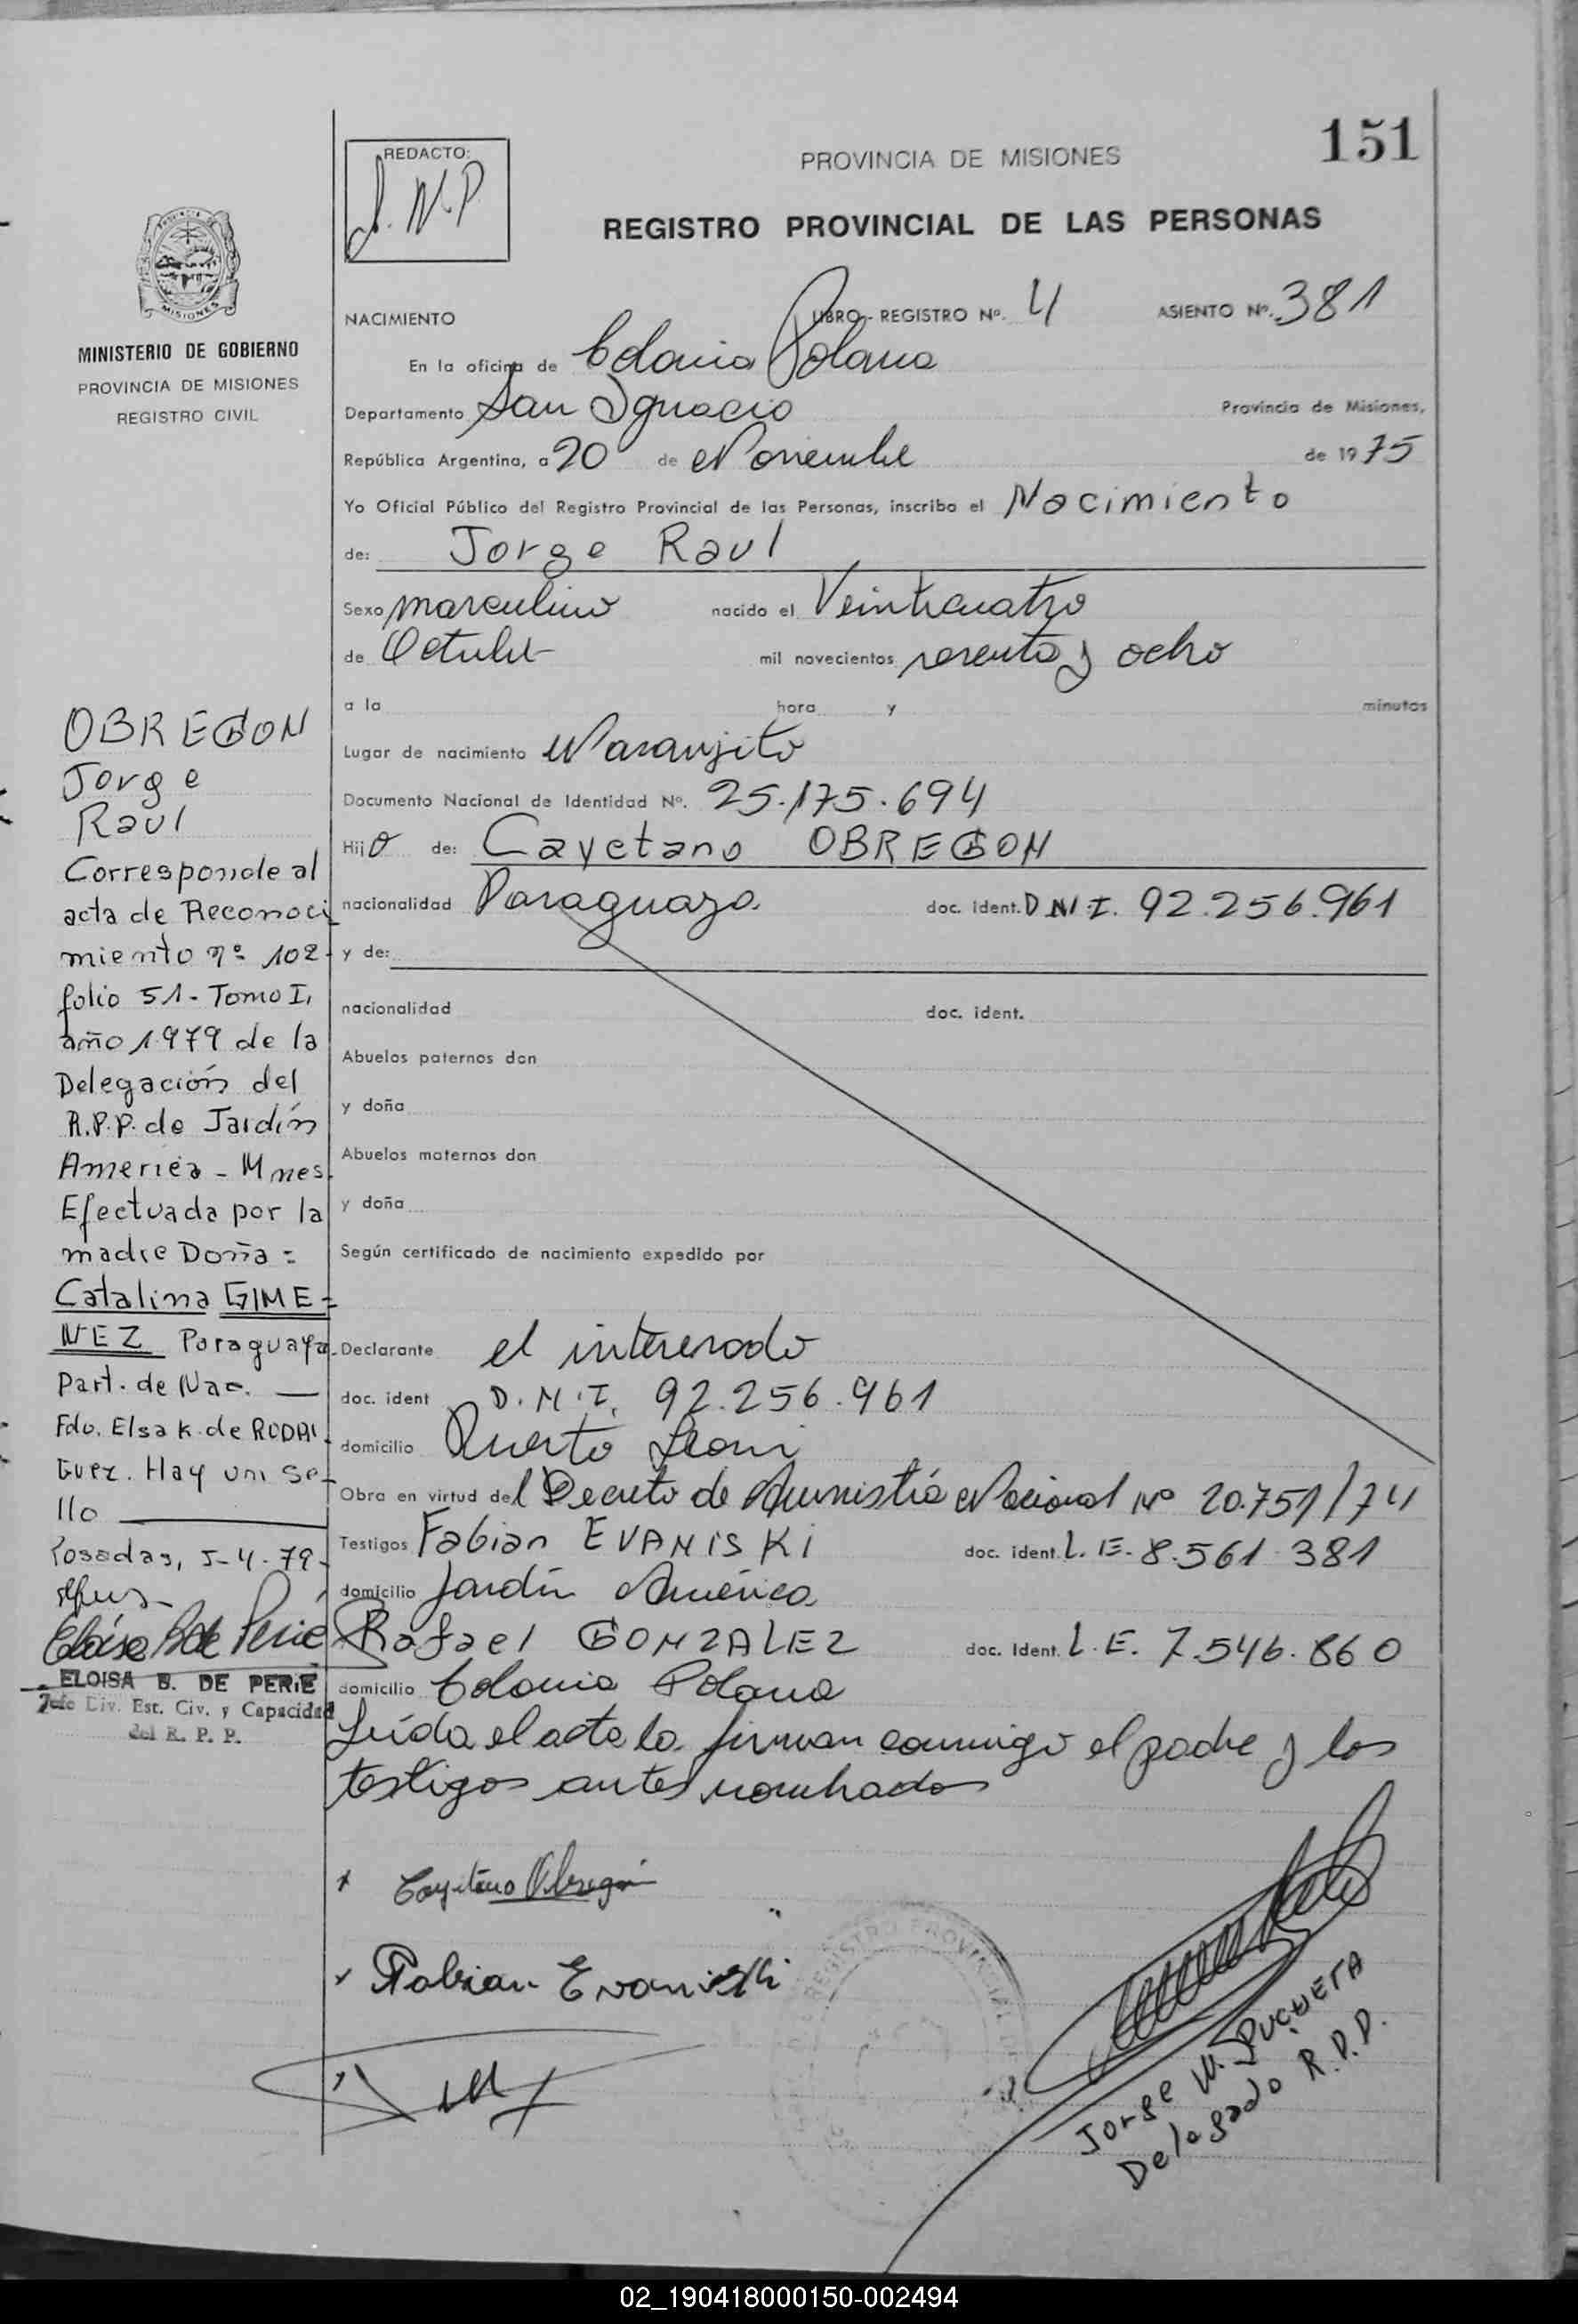 151
REDACTO:
J. M. P.
PROVINCIA DE MISIONES
REGISTRO PROVINCIAL DE LAS PERSONAS
MISIONES
MINISTERIO DE GOBIERNO
PROVINCIA DE MISIONES
REGISTRO CIVIL
NACIMIENTO LIBRO - REGISTRO Nº. 4 ASIENTO Nº. 381
En la oficina de Colonia Polana
Departamento San Ignacio Provincia de Misiones,
República Argentina, a 20 de Noviembre de 1975
Yo Oficial Público del Registro Provincial de las Personas, inscribo el Nacimiento
de: Jorge Raul
Sexo masculino nacido el Veinticuatro
de Octubre mil novecientos sesenta y ocho
a la hora y minutos
Lugar de nacimiento Naranjito
Documento Nacional de Identidad Nº. 25.175.694
Hijo de: Cayetano OBREGON
nacionalidad Paraguaya. doc. ident. D.N.I. 92.256.961
y de:
nacionalidad doc. ident.
Abuelos paternos don
y doña
Abuelos maternos don
y doña
Según certificado de nacimiento expedido por
Declarante el interesado
doc. ident D.N.I. 92.256.961
domicilio Puerto Leoni
Obra en virtud del Decreto de Amnistía Nacional Nº 20.751/74
Testigos Fabian EVANISKI doc. ident. L.E. 8.561.381
domicilio Jardín América
Rafael GONZALEZ doc. Ident. L.E. 7.546.860
domicilio Colonia Polana
Leída el acta la firman conmigo el padre y los
testigos antes nombrados
OBREGON
Jorge
Raul
Corresponde al
acta de Reconoci
miento nº 102
folio 51 - Tomo I,
año 1979 de la
Delegación del
R.P.P. de Jardín
America - Mnes.
Efectuada por la
madre Doña =
Catalina GIME=
NEZ Paraguaya.
Part. de Nac.
Fdo. Elsa K. de RODRI
GUEZ. Hay un se-
llo
Posadas, 5-4-79-
Eloisa B. de Perié
ELOISA B. DE PERIE
Jefe Div. Est. Civ. y Capacidad
del R. P. P.
x Cayetano Obregón
x Fabian Evaniski
REGISTRO PROVINCIAL DE
Jorge M. PUCHETA
Delegado R.P.P.
02_190418000150-002494